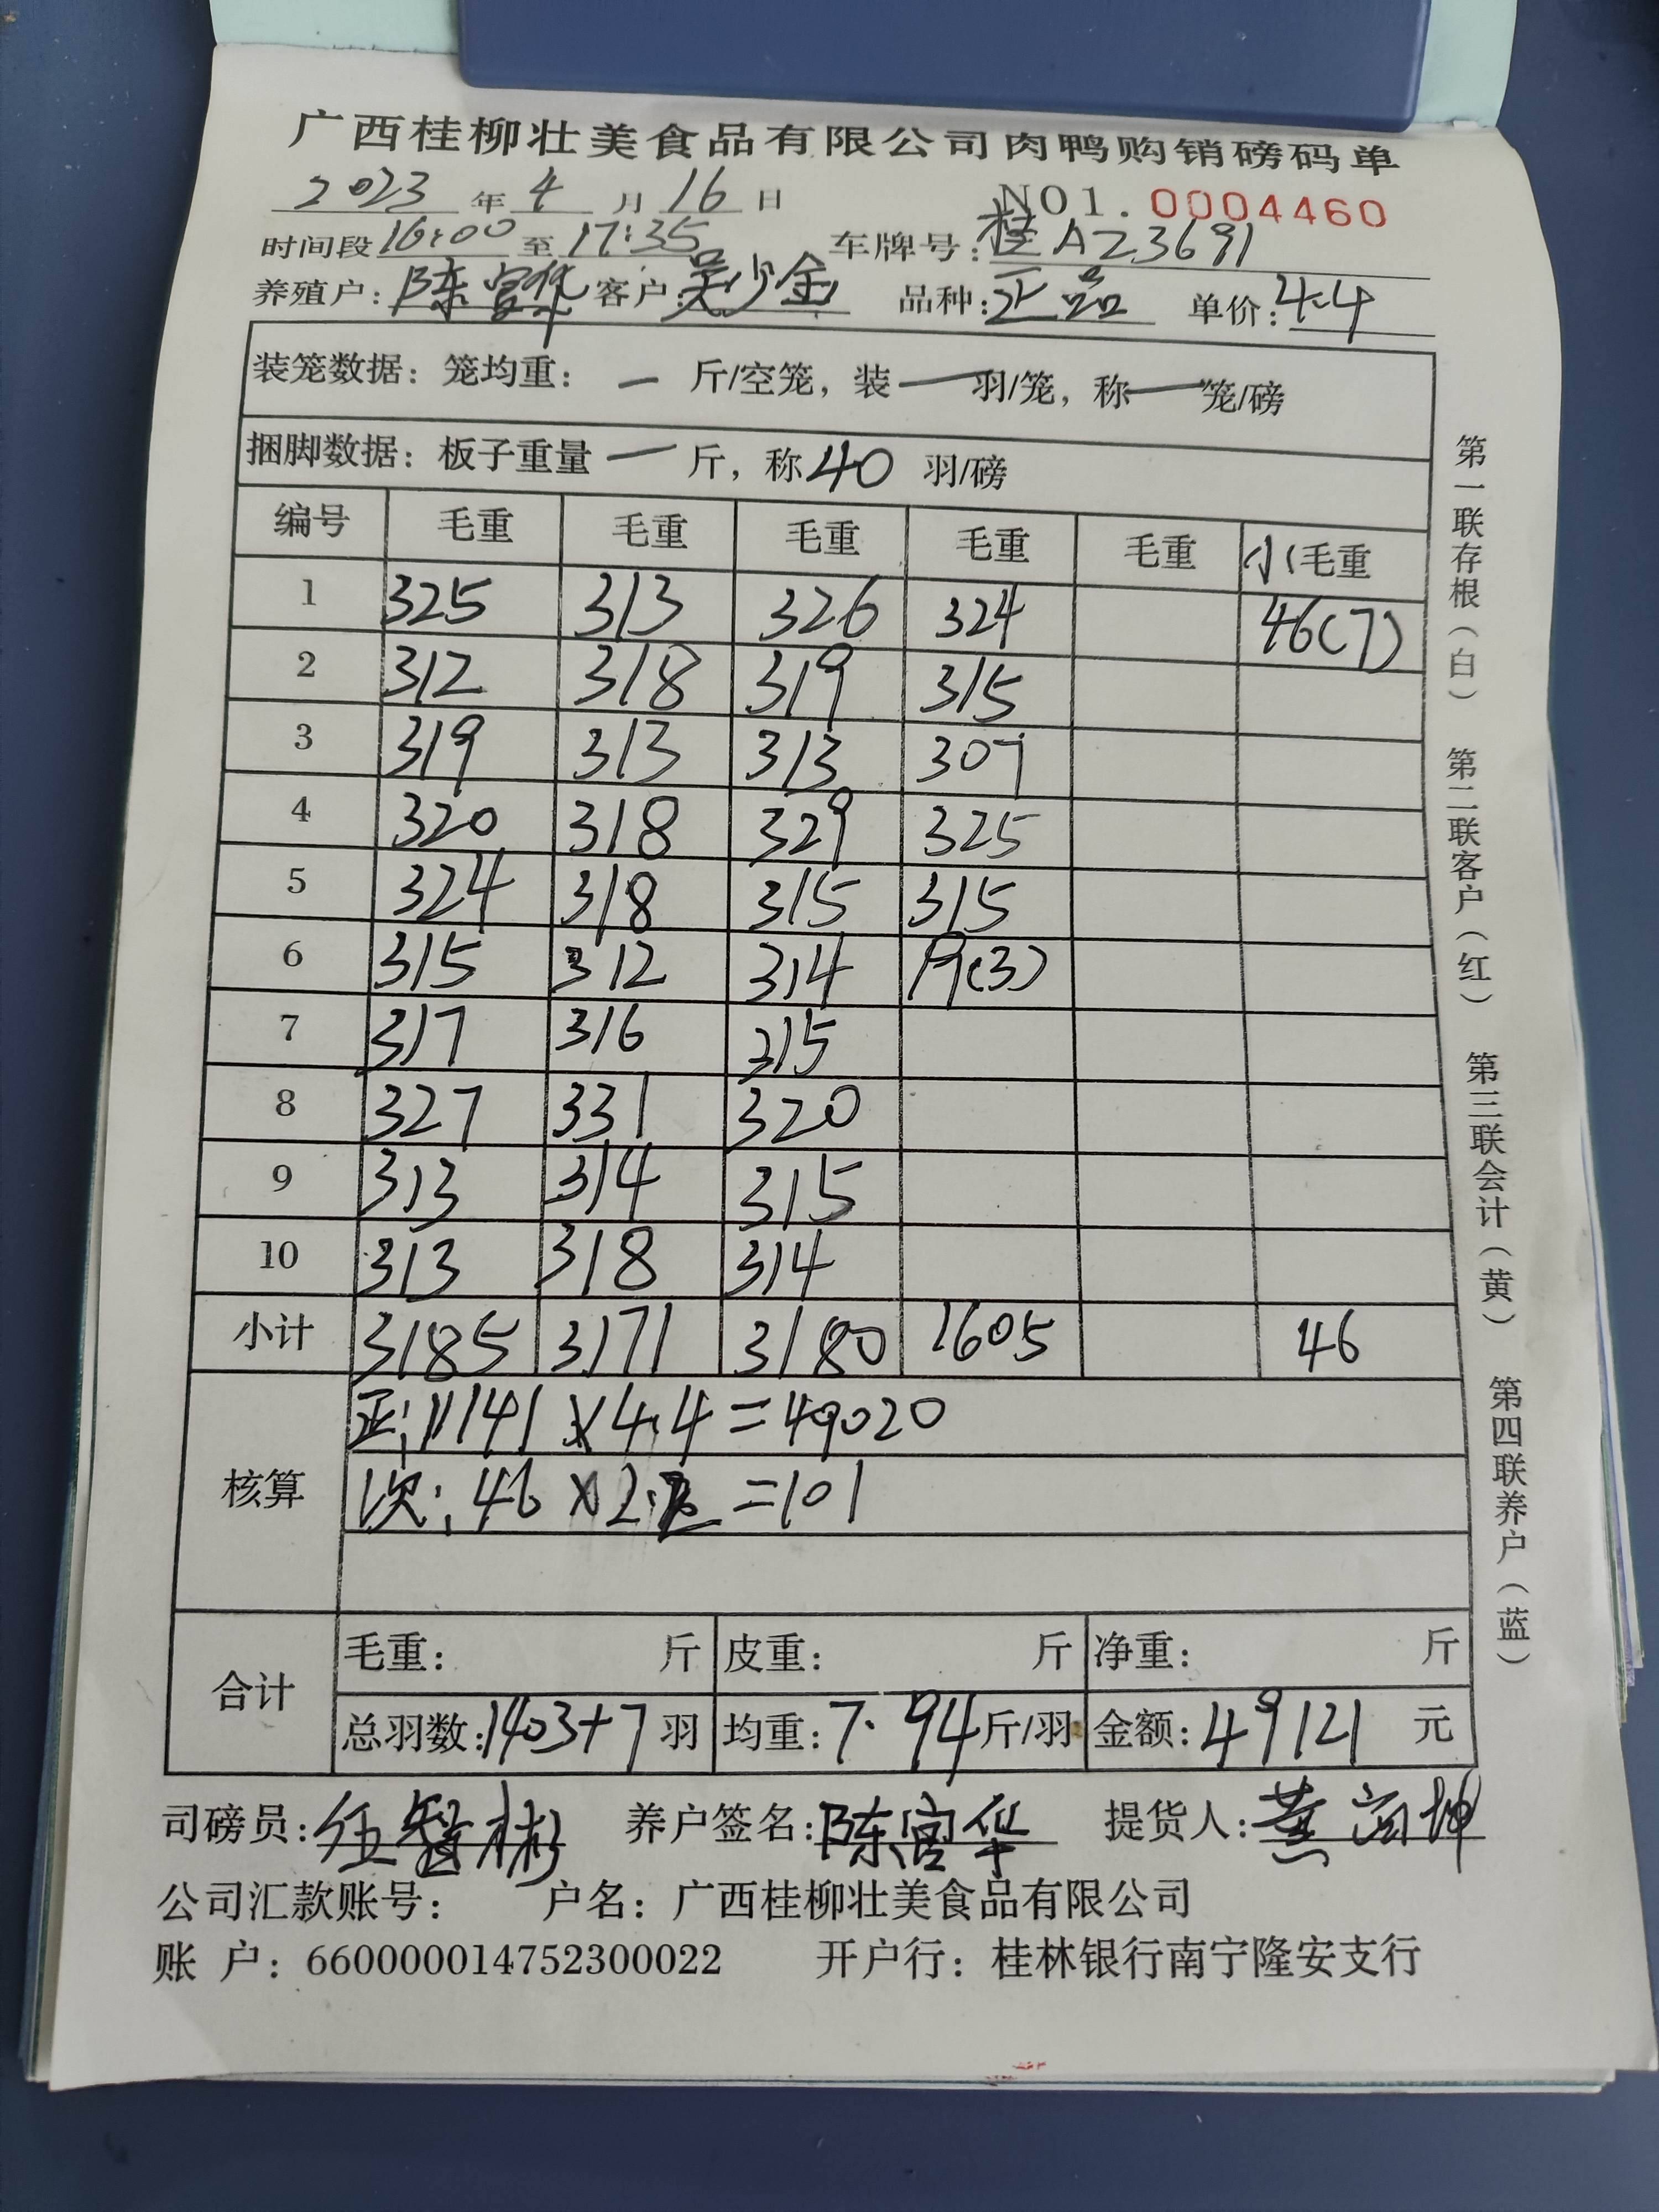 广西桂柳壮美食品有限公司肉鸭购销磅码单
2023 年 4 月 16 日 NO1. 0004460
时间段 16:00 至 17:35 车牌号: 桂A23691
养殖户: 陈宫华 客户: 吴少金 品种: 正品 单价: 4.4
装笼数据: 笼均重: — 斤/空笼, 装 — 羽/笼, 称 — 笼/磅
捆脚数据: 板子重量 — 斤, 称 40 羽/磅
编号 毛重 毛重 毛重 毛重 毛重 小毛重
1 325 313 326 324 46(7)
2 312 318 319 315
3 319 313 313 307
4 320 318 329 325
5 324 318 315 315
6 315 312 314 19(3)
7 317 316 315
8 327 331 320
9 313 314 315
10 313 318 314
小计 3185 3171 3180 1605 46
正: 11141 × 4.4 = 49020
核算 次: 46 × 2.2 = 101
毛重: 斤 皮重: 斤 净重: 斤
合计
总羽数: 1403+7 羽 均重: 7.94 斤/羽 金额: 49121 元
司磅员: 伍智彬 养户签名: 陈宫华 提货人: 黄
公司汇款账号: 户名: 广西桂柳壮美食品有限公司
账 户: 660000014752300022 开户行: 桂林银行南宁隆安支行
第一联存根(白) 第二联客户(红) 第三联会计(黄) 第四联养户(蓝)